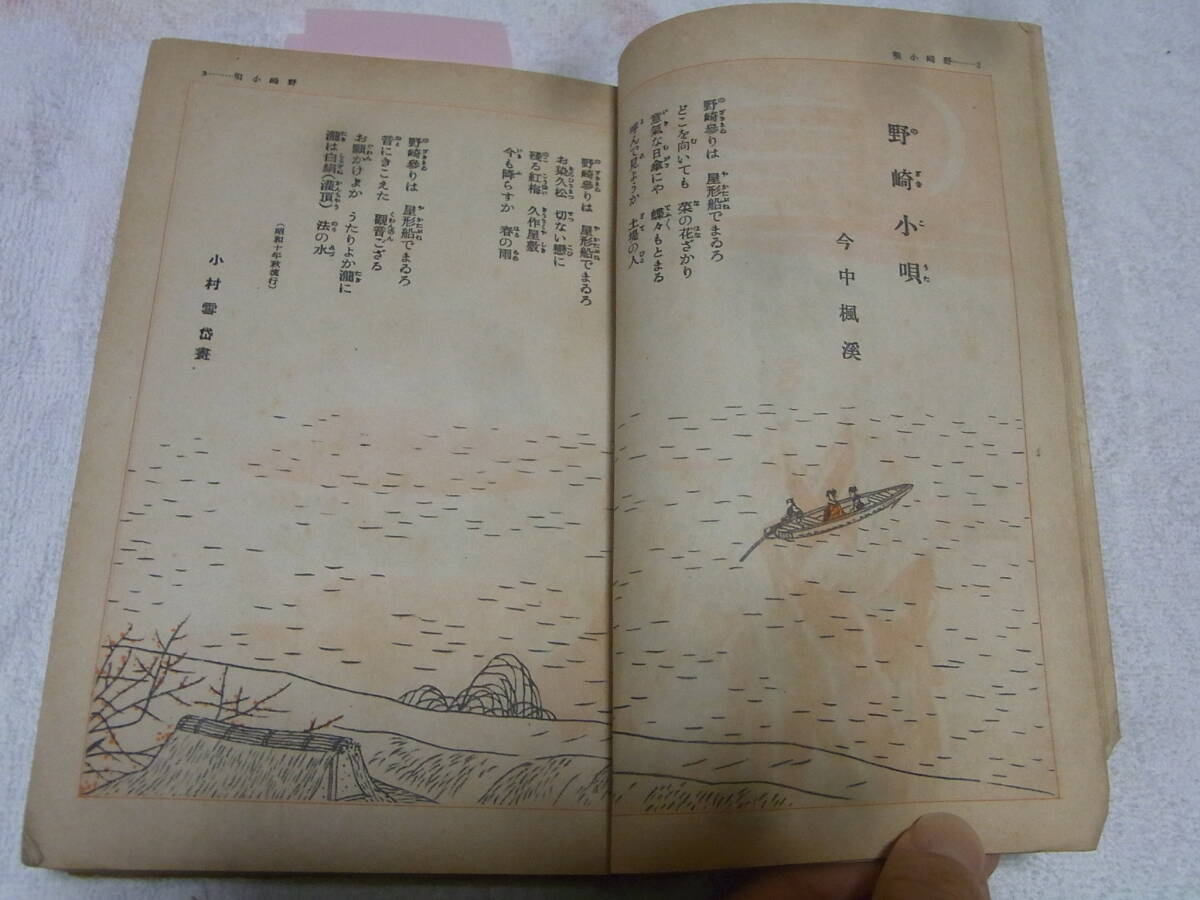 2……野崎小唄
野崎小唄
今中楓溪
野崎參りは 屋形船でまゐろ
どこを向いても 菜の花ざかり
意氣な日傘にや 蝶々もとまる
呼んで見ようか 土堤の人
野崎參りは 屋形船でまゐろ
お染久松 切ない戀に
殘る紅梅 久作屋敷
今も降らすか 春の雨
野崎參りは 屋形船でまゐろ
昔にきこえた 觀音ござる
お願かけよか うたりよか瀧に
瀧は白絹(灌頂) 法の水
(昭和十年秋流行)
小村雪岱畫
3……野崎小唄